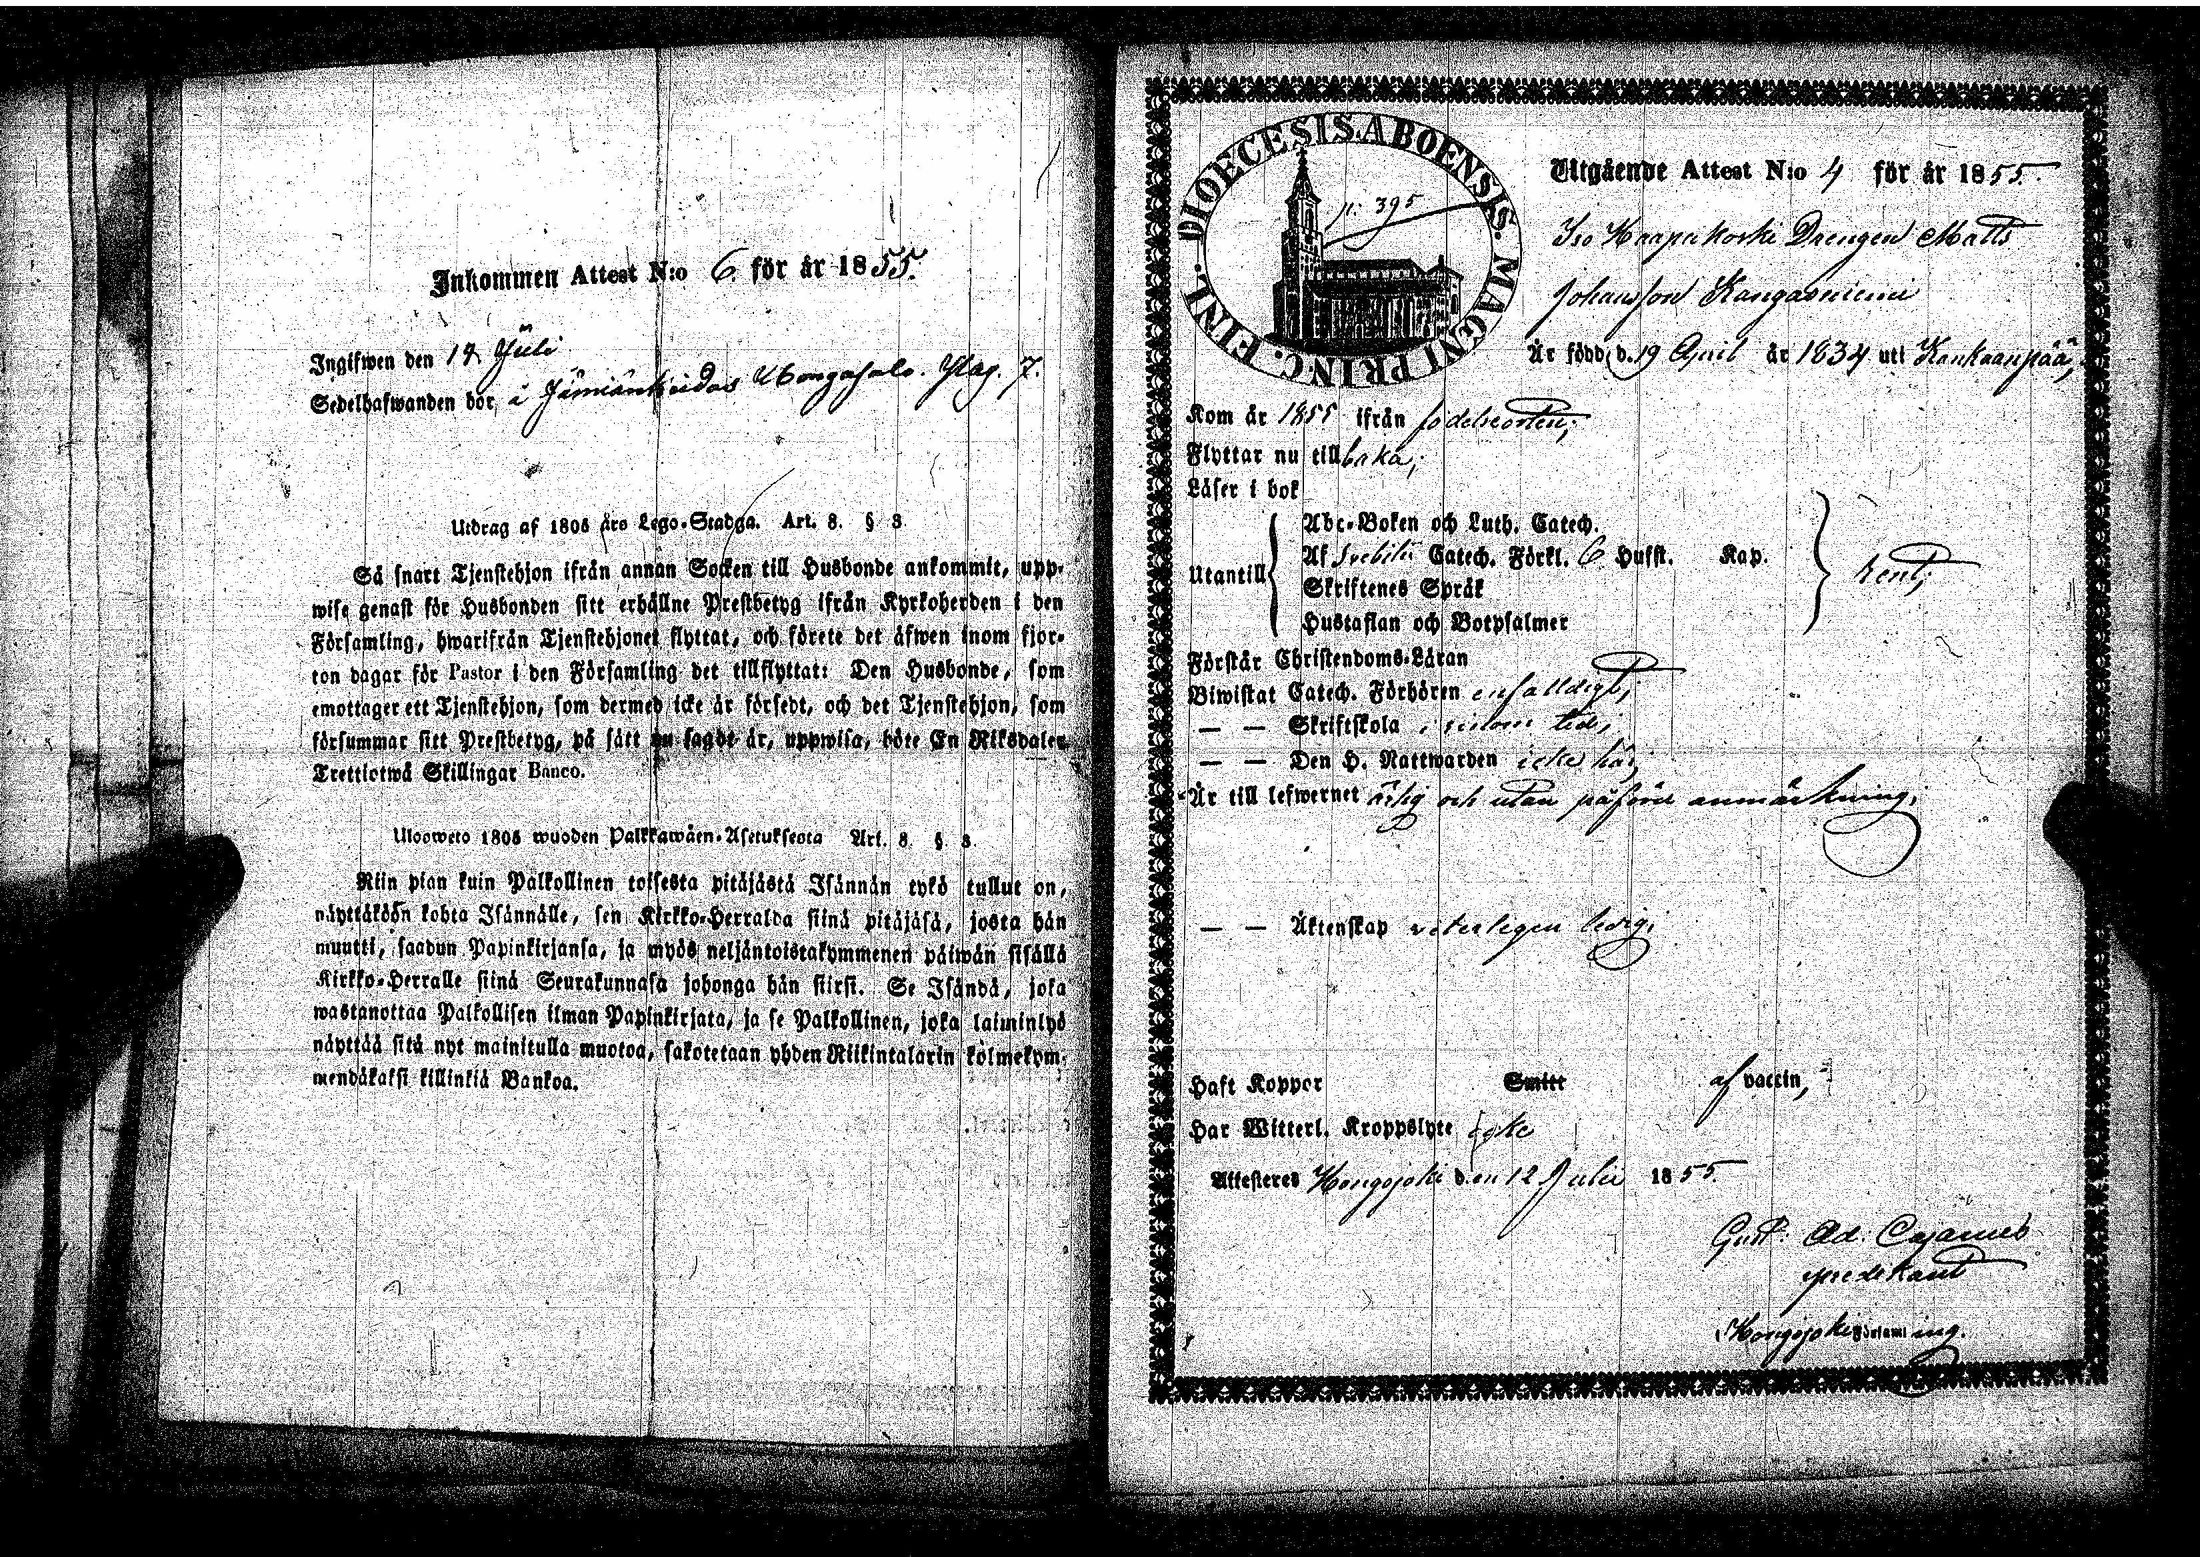 Inkommen Attest N:o 6 för år 1855.
Ingifwen den 17 Juli
Sedelhafwanden bor, i Jämiänkeidas Pag. 7.
Utdrag af 1805 års Lego-Stadga. Art. 8. § 3
Så snart Tjenstehjon ifrån annan Socken till Husbonde ankommit, upp-
wise genast för Husbonden sitt erhållne Prestbetyg ifrån Kyrkoherden i den
Församling, hwarifrån Tjenstehjonet flyttat, och förete det äfwen inom fjor-
ton dagar för Pastor i den Församling det tillflyttat: Den Husbonde, som
emottager ett Tjenstehjon, som dermed icke är försedt, och det Tjenstehjon, som
försummar sitt Prestbetyg, på sätt nu sagdt är, uppwisa, böte En Riksdaler
Trettiotwå Skillingar Banco.
Ulosweto 1805 wuoden Palkkawäen-Asetuksesta Art. 8. §. 3.
Niin pian kuin Palkollinen toisesta pitäjästä Isännän tykö tullut on,
näyttäköön kohta Isännälle, sen Kirkko-Herralda siinä pitäjäsä, josta hän
muutti, saadun Papinkirjansa, ja myös neljäntoistakymmenen päiwän sisällä
Kirkko-Herralle siinä Seurakunnasa johonga hän siirsi. Se Isändä, joka
wastanottaa Palkollisen ilman Papinkirjata, ja se Palkollinen, joka laiminlyö
näyttää sitä nyt mainitulla muotoa, sakotetaan yhden Riikintalarin kolmekym-
mendäkaksi killinkiä Bankoa.
DIOECESIS ABOENSIS. MAGNI PRINC. FINL.
p. 395
Utgående Attest N:o 4 för år 1855.
Iso Haapakoski Drengen Matts
Johansson Kangasniemi
Är född d. 19 April år 1834 uti Kankaanpää,
Kom år 1855 ifrån födelseorten,
Flyttar nu tillbaka,
Läser i bok
Utantill
Abc-Boken och Luth. Catech.
Af Svebilii Catech. Förkl. 6 Hufst. Kap.
Skriftenes Språk
Hustaflan och Botpsalmer
rent,
Förstår Christendoms-Läran
Biwistat Catech. Förhören enfalldigt,
— — Skriftskola i sinom tid,
— — Den H. Nattwarden icke här,
Är till lefwernet ärlig och utan påförd anmärkning,
— — Äktenskap veterligen ledig,
Haft Koppor Smitt af vaccin,
Har Witterl. Kroppslyte icke
Attesteres Hongojoki den 12 Julii 1855.
Gust. Ad. Cajanus
predikant
Hongojoki församling.